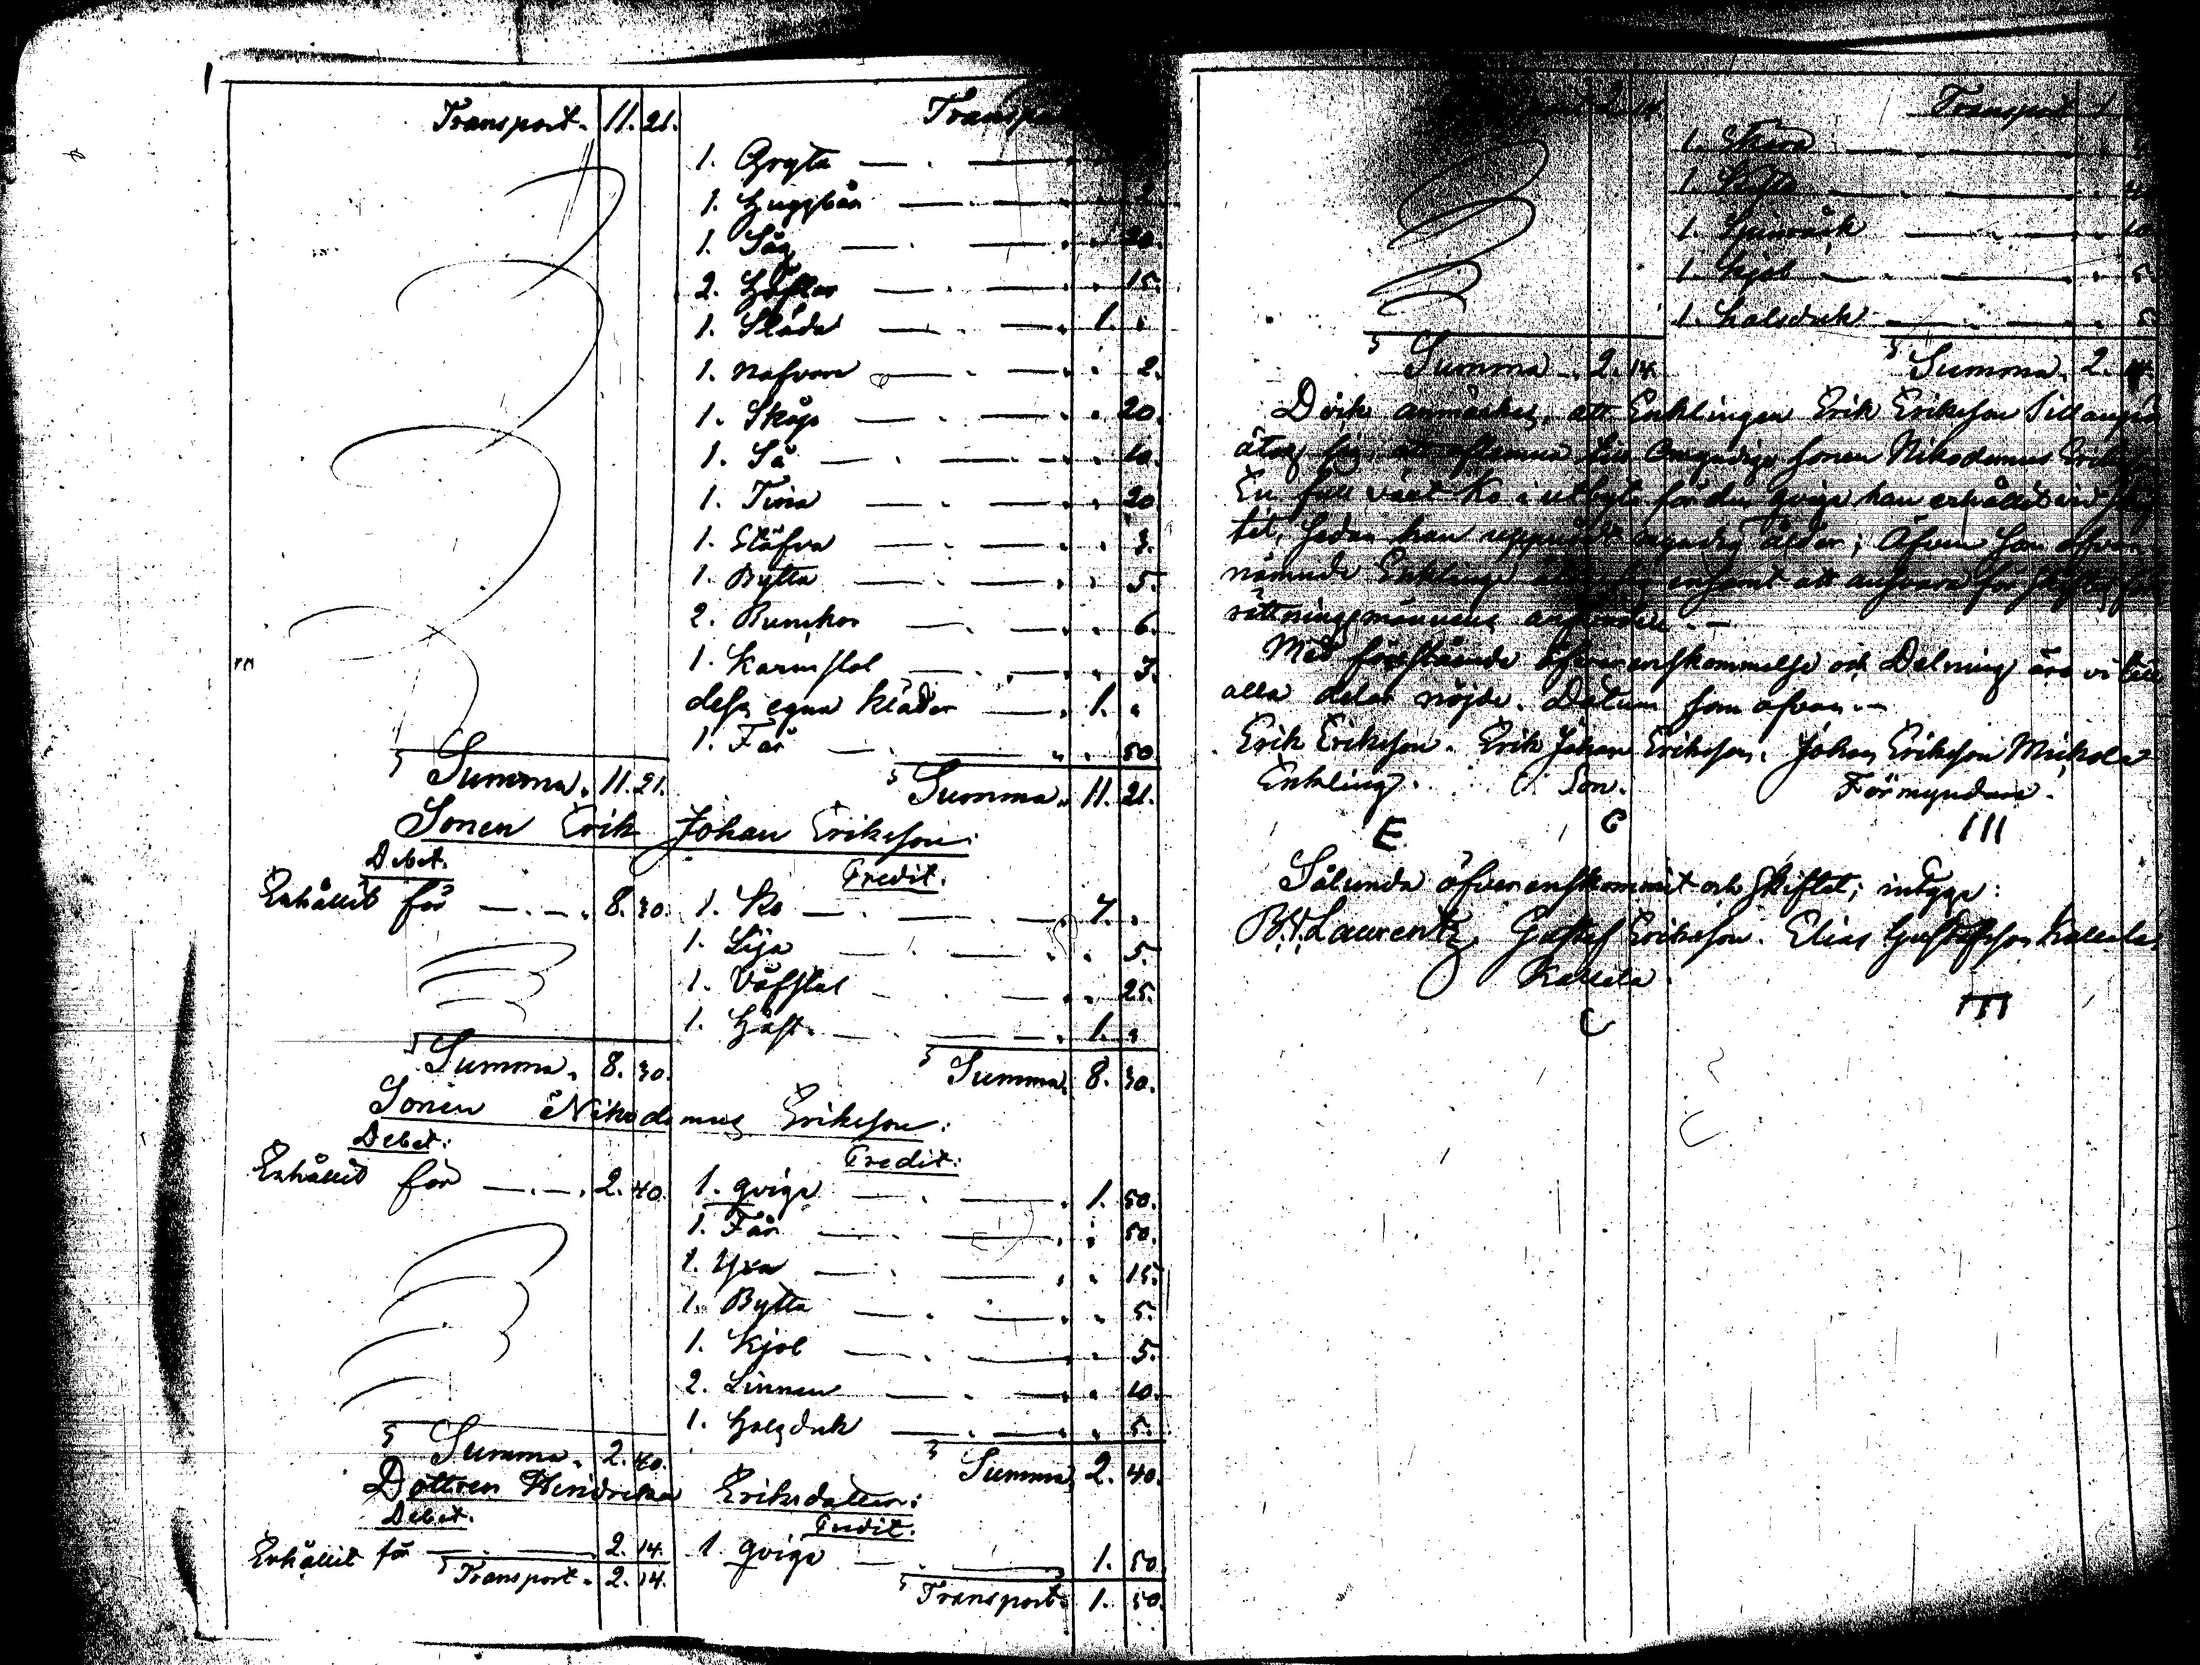 Transport. 11. 21.
Transpo
1. Gryta
1. Huggbår
1. Såg 20.
2. Höflar 15.
1. Släde 1.
1. Nafvare 2.
1. Skåp 20.
1. Så 10.
1. Tina 20.
1. Stäfva 3.
1. Bytta 5.
2. Bunckor 6.
1. Karmstol 3.
dess egna kläder 1.
1. Får 50.
Summa. 11. 21. Summa. 11. 21.
Sonen Erik Johan Eriksson.
Debet. Credit.
Erhållit för 8. 30. 1. Ko 7.
1. Lija 5.
1. Väfstol 25.
1. Häst. 1.
Summa. 8. 30. Summa. 8. 30.
Sonen Nikodemus Eriksson:
Debet: Credit:
Erhållit för 2. 40. 1. qviga 1. 50.
1. Får 50.
1. Yxa 15.
1. Bytta 5.
1. Kjol 5.
2. Linnen 10.
1. Halsduk 5.
Summa. 2. 40. Summa. 2. 40.
Dottren Hendrika Eriksdotter:
Debet. Credit.
Erhållit för 2. 14. 1. qviga 1. 50
Transport. 2. 14. Transport. 1. 50.
2. 14. Transport 1
1. Skära
1.
1. 10
1. Kjol 5
1. halsduk 5
Summa. 2. 14. Summa. 2. 14.
Dock anmärkes, att Enklingen Erik Eriksson
åtog sig, att aflemna till omyndige sonen Nikodemus
En full växt Ko i utbyte för den qviga han erhållit vid
tet, sedan han uppnådt myndig ålder; Äfven som ofvan
nämnde Enkling ensamt att ansvara för
rättningsmännens arfvode.
Med förestående öfverenskommelse och Delning äro vi till
alla delar nöjde. Datum som ofvan.
Erik Eriksson. Erik Johan Eriksson. Johan Eriksson Mickola
Enkling. Son. Förmyndare.
E C III
Sålunda öfverenskommit och skiftet; intyga:
B.V. Laurentz Gustaf Eriksson. Elias Gustafsson Kallela
Kallela